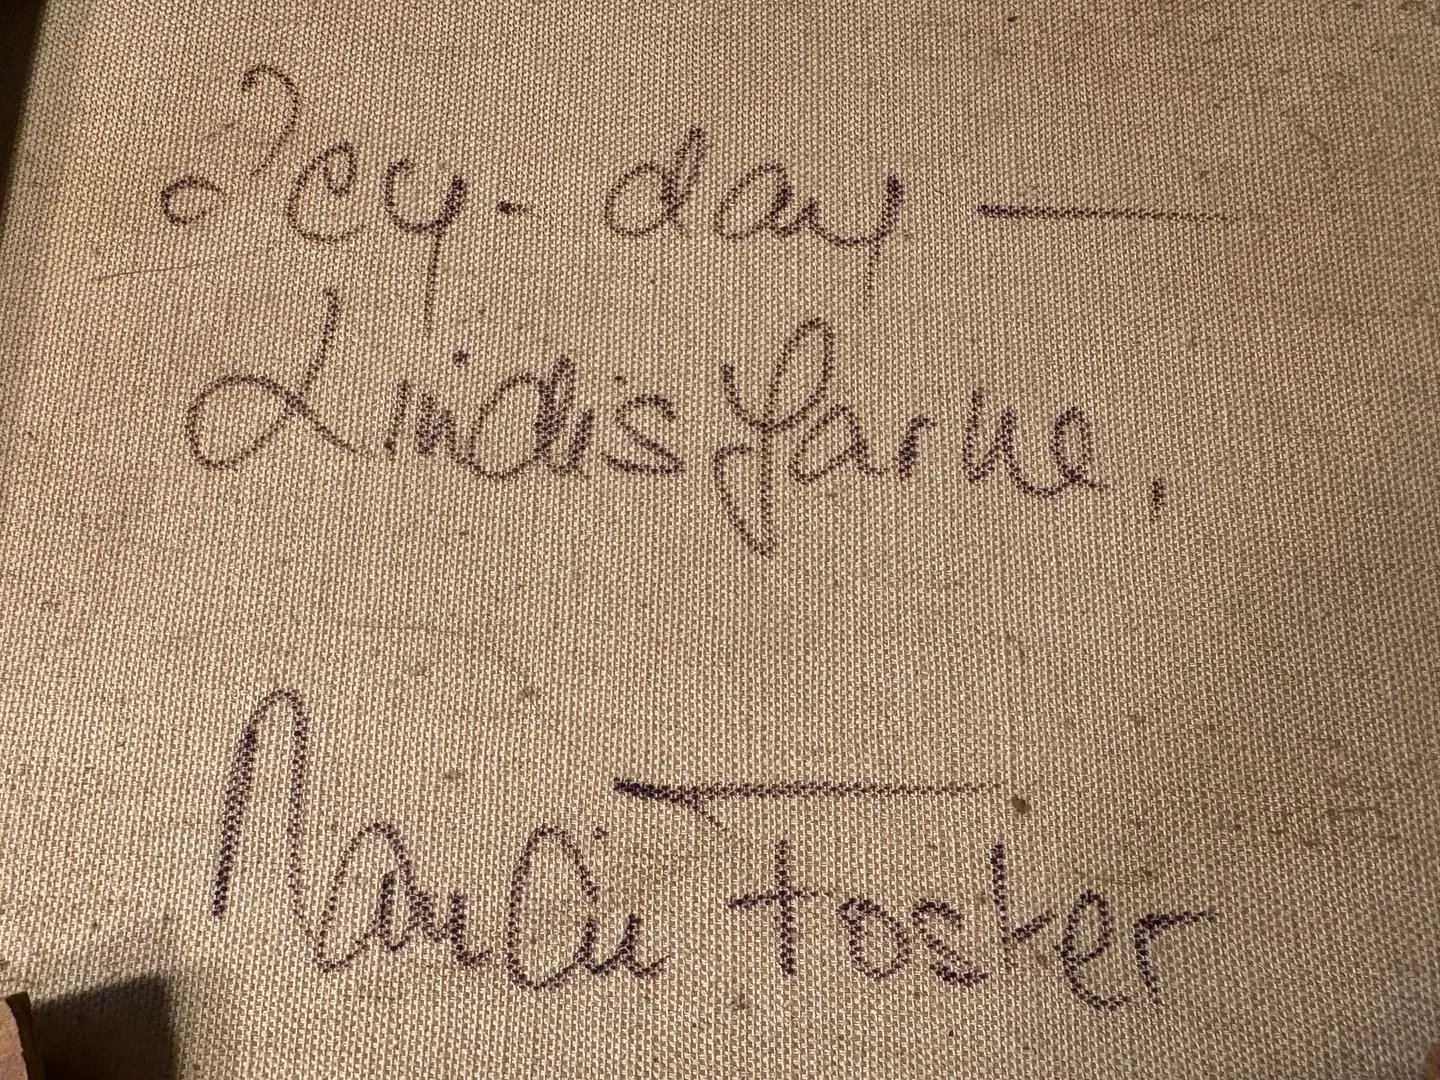 Icy-day —
Lindisfarne,
Foster